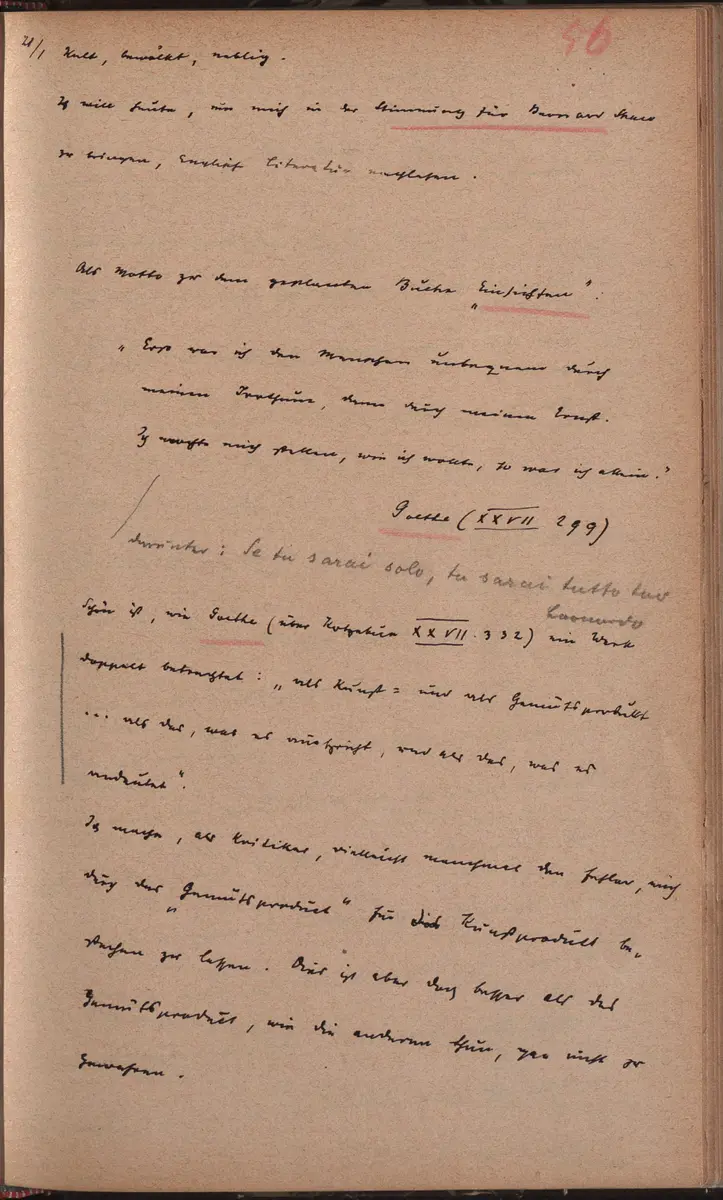 46
21/1 Kalt, bewölkt, neblig.
Ich will heute, um mich in die Stimmung für Bernard Shaw
zu bringen, Englische Literatur nachlesen.
Als Motto zu dem geplanten Buche „Einsichten“:
„Erst war ich den Menschen unbequem durch
meinen Irrthum, dann durch meinen Ernst.
Ich mochte mich stellen, wie ich wollte, so war ich allein.“
Goethe (XXVII 299)
darunter: Se tu sarai solo, tu sarai tutto tuo
Leonardo
Schön ist, wie Goethe (über Kotzebue XXVII. 332) ein Werk
doppelt betrachtet: „als Kunst= und als Gemütsprodukt
... als das, was es ausspricht, und als das, was es
andeutet“.
Ich mache, als Kritiker, vielleicht manchmal den Fehler, mich
durch das „Gemütsproduct“ für das Kunstprodukt be-
stechen zu lassen. Dies ist aber doch besser als das
Gemütsproduct, wie die anderen thun, gar nicht zu
gewahren.